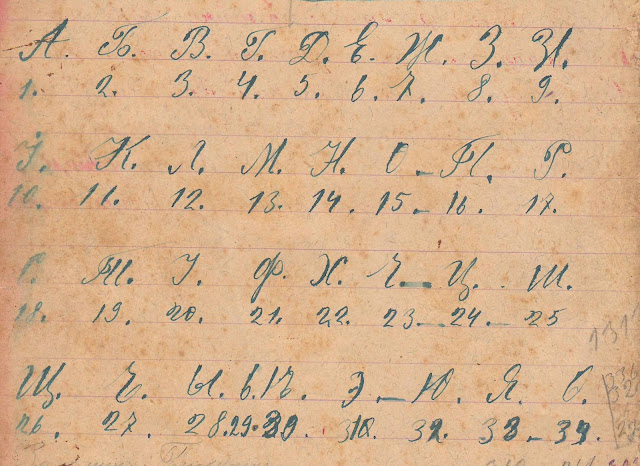 А. Б. В. Г. Д. Е. Ж. З. И.
1. 2. 3. 4. 5. 6. 7. 8. 9.
І. К. Л. М. Н. О – П. Р.
10. 11. 12. 13. 14. 15 – 16. 17.
С. Т. У. Ф. Х. Ч – Ц. Ш.
18. 19. 20. 21. 22. 23 – 24 – 25
Щ. Ъ. Ы. Ь. Ѣ. Э – Ю. Я. Ѳ.
26. 27. 28. 29. 30. 31. 32. 33 – 34.